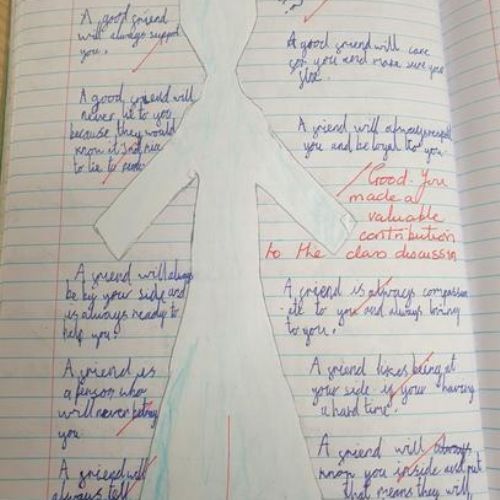 A good friend
will always support
you.
A good friend will care
for you and make sure your
A good friend will
never lie to you
because they would
know it
to lie to
A friend will always respect
you and be loyal to you.
Good. You
made a
valuable
contribution
to the class discussion
A friend will always
be by your side and
is always ready to
help you.
A friend is always compassion
-ate to you and always loving
to you.
A friend is
a person who
will never betray
you
A friend likes being at
your side is your having
a hard time.
A friend will
always tell
A friend will always
know you inside and out
that means they will